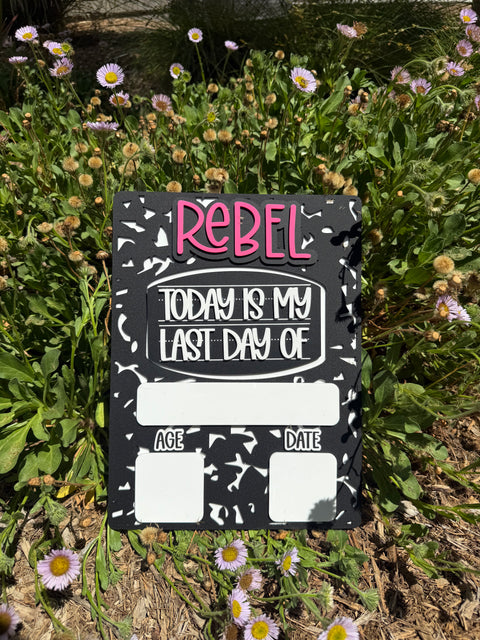 ReBEL
TODAY IS MY
LAST DAY OF
AGE DATE